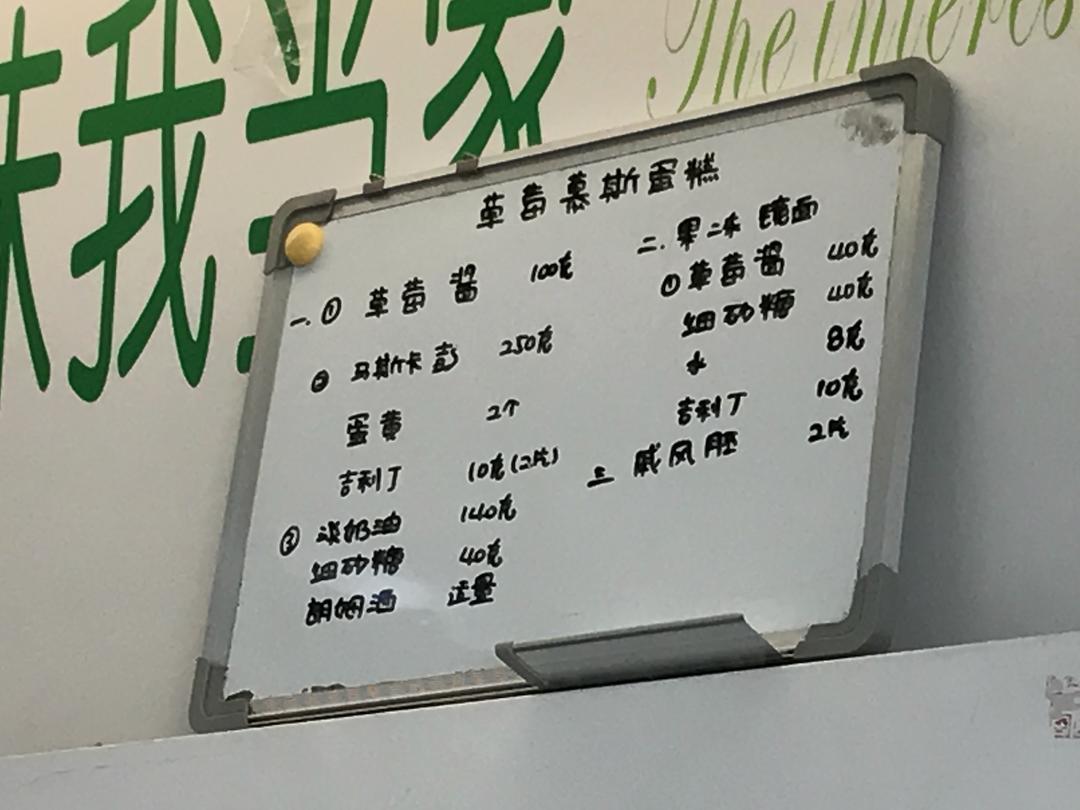 味我当家
The interes
草莓慕斯蛋糕
一. ① 草莓酱 100克
② 马斯卡彭 250克
蛋黄 2个
吉利丁 10克(2片)
③ 淡奶油 140克
细砂糖 40克
朗姆酒 适量
二. 果冻 镜面
① 草莓酱 40克
细砂糖 40克
水 8克
吉利丁 10克
三 戚风胚 2片